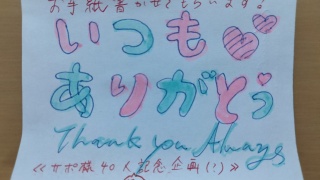 お手紙書かせてもらいます。
いつも
ありがとっ
Thank you Always
≪サポ様40人記念企画(?)≫